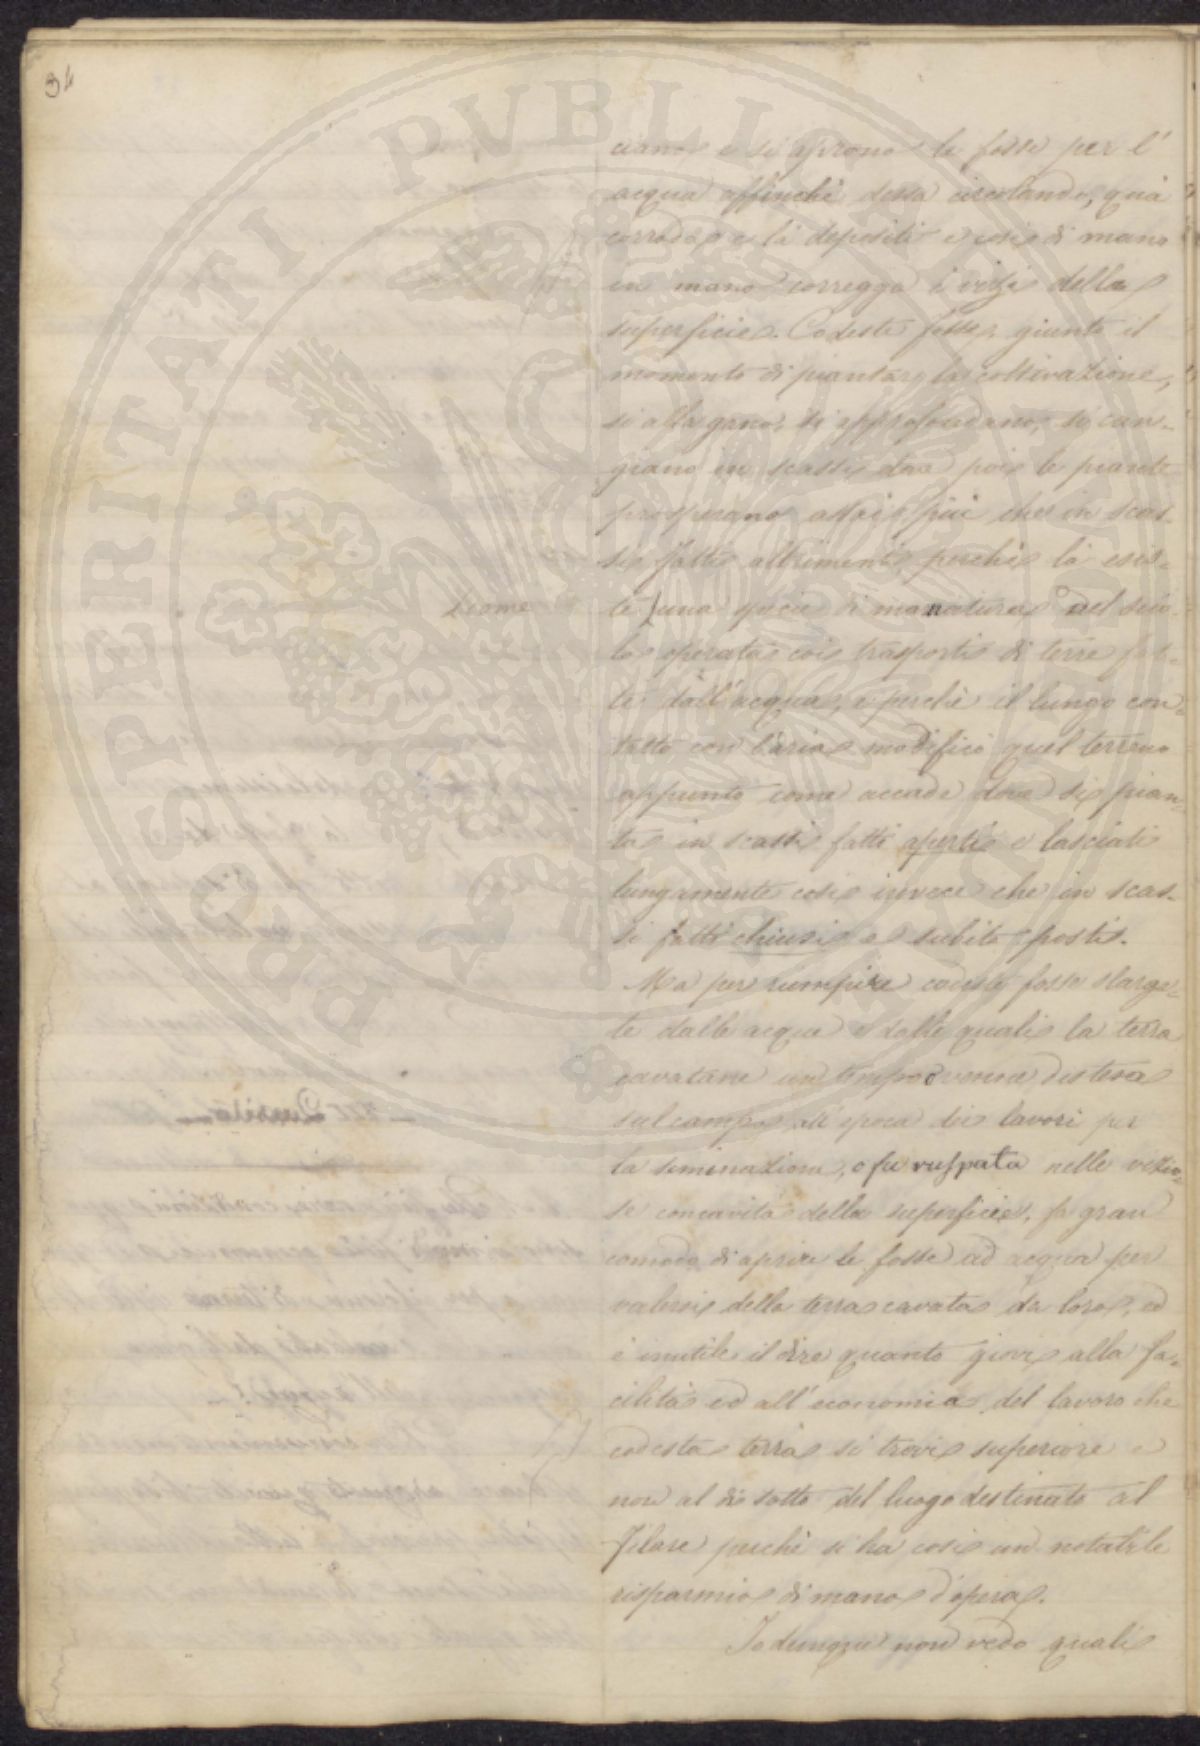 34
ciano e si aprono le fosse per l'
acqua affinchè dessa circolando, quà
corroda e là depositi e così di mano
in mano corregga i vizi della
superficie. Codeste fosse, giunto il
momento di piantare la coltivazione,
si allargano, si approfondano, si can-
giano in scassi dove poi le piante
prosperano assai più che in scas-
si fatti altrimenti perchè là esis-
te una specie di manatura del suo-
lo operata coi trasporti di terre fat-
te dall'acqua, e perchè il lungo con-
tatto con l'aria modificò quel terreno
appunto come accade dove si pian-
ta in scassi fatti aperti e lasciati
lungamente così invece che in scas-
si fatti chiusi e subito posti.
Ma per riempire codeste fosse slarga-
te dalle acque e dalle quali la terra
cavatane un tempo venne distesa
sul campo all'epoca dei lavori per
la seminazione, o fu ruspata nelle
se concavità della superficie, fa gran
comodo di aprire le fosse ad acqua per
valersi della terra cavata da loro, ed
è inutile il dire quanto giovi alla fa-
cilità ed all'economia del lavoro che
codesta terra si trovi superiore e
non al di sotto del luogo destinato al
filare perchè si ha così un notabile
risparmio di mano d'opera.
Io dunque non vedo quali
PROSPERITATI PUBLICAE